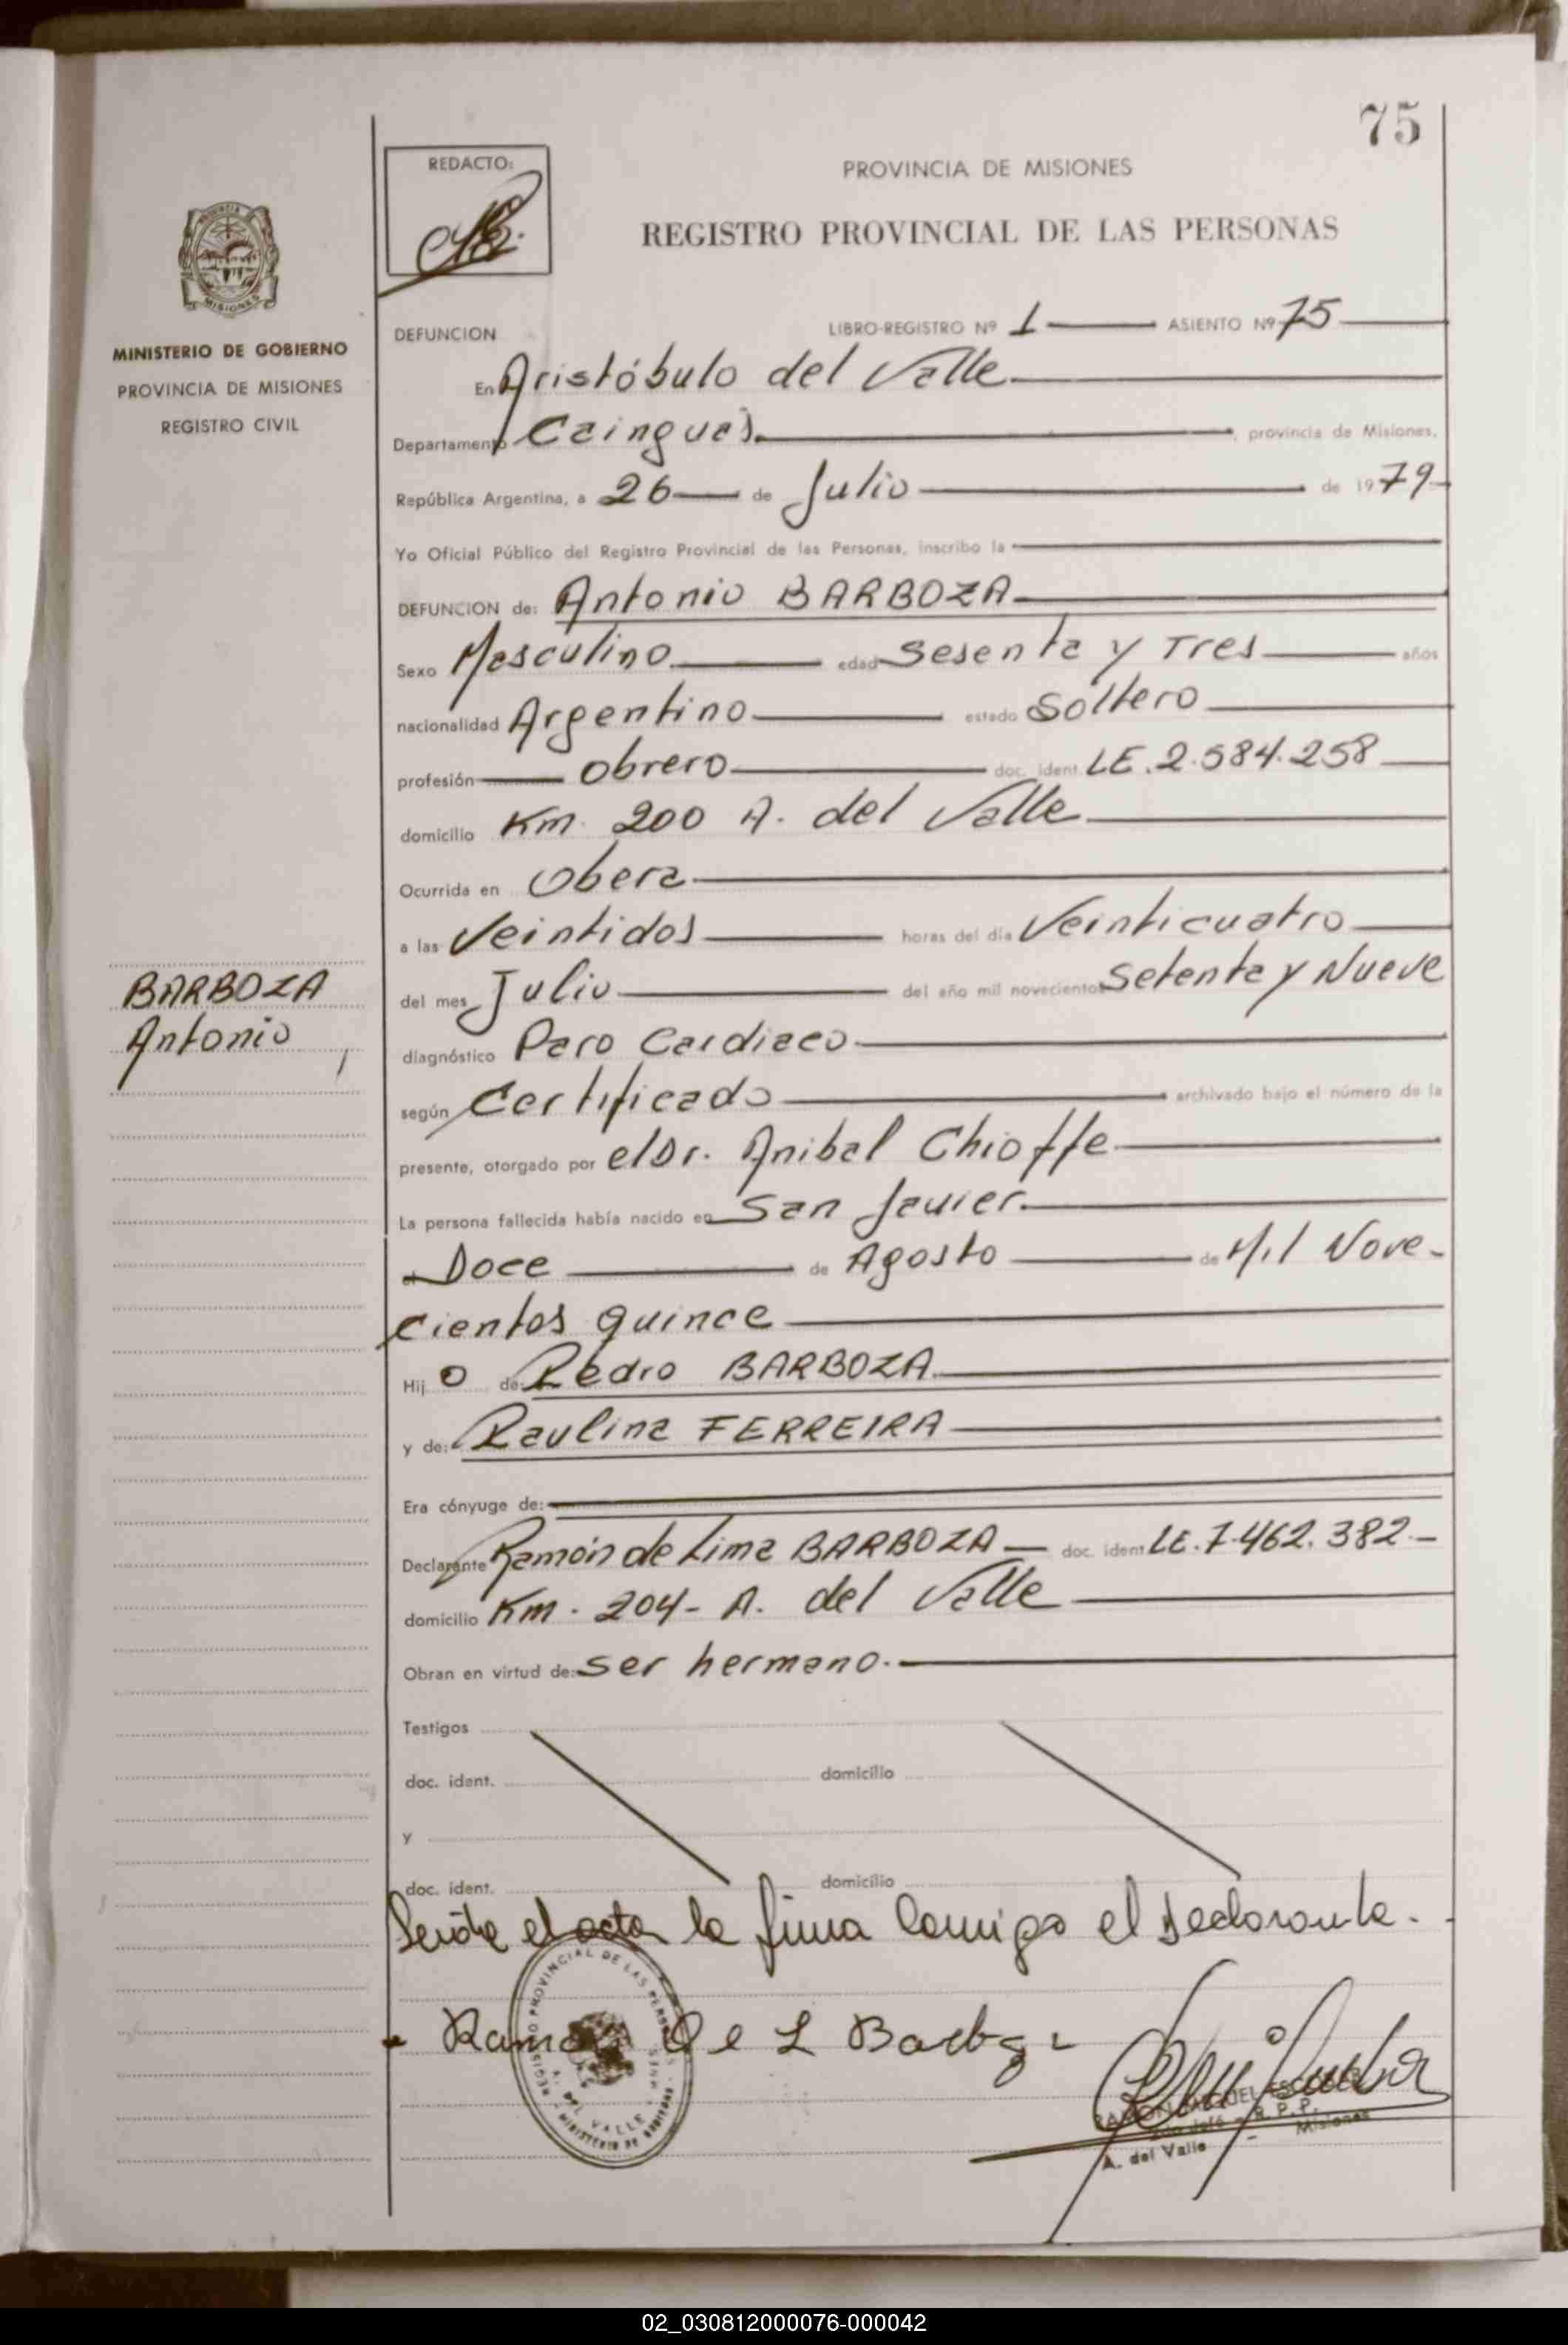 75
REDACTO:
PROVINCIA DE MISIONES
REGISTRO PROVINCIAL DE LAS PERSONAS
MISIONES
MINISTERIO DE GOBIERNO
PROVINCIA DE MISIONES
REGISTRO CIVIL
DEFUNCION LIBRO-REGISTRO Nº 1 ASIENTO Nº 75
En Aristóbulo del Valle
Departamento Cainguás. , provincia de Misiones,
República Argentina, a 26 de Julio de 1979
Yo Oficial Público del Registro Provincial de las Personas, inscribo la
DEFUNCION de: Antonio BARBOZA
Sexo Masculino edad Sesenta y Tres años
nacionalidad Argentino estado Soltero
profesión Obrero doc. ident. LE.2.584.258
domicilio Km. 200 A. del Valle
Ocurrida en Obera
a las Veintidos horas del día Veinticuatro
del mes Julio del año mil novecientos Setenta y Nueve
BARBOZA
Antonio
diagnóstico Paro Cardiaco
según Certificado archivado bajo el número de la
presente, otorgado por el Dr. Anibal Chioffe
La persona fallecida había nacido en San Javier.
el Doce de Agosto de Mil Nove-
cientos quince
Hij o de: Pedro BARBOZA
y de: Paulina FERREIRA
Era cónyuge de:
Declarante Ramón de Lima BARBOZA doc. ident. LE.7.462.382.-
domicilio Km. 204- A. del Valle
Obran en virtud de: Ser hermano.
Testigos
doc. ident. domicilio
y
doc. ident. domicilio
el acta la firma conmigo el declarante.
Ramon De L Barboza
REGISTRO PROVINCIAL DE LAS PERSONAS
A. DEL VALLE - MNES
RAMON MIGUEL ESCOBAR
R. P. P.
A. del Valle - Misiones
02_030812000076-000042